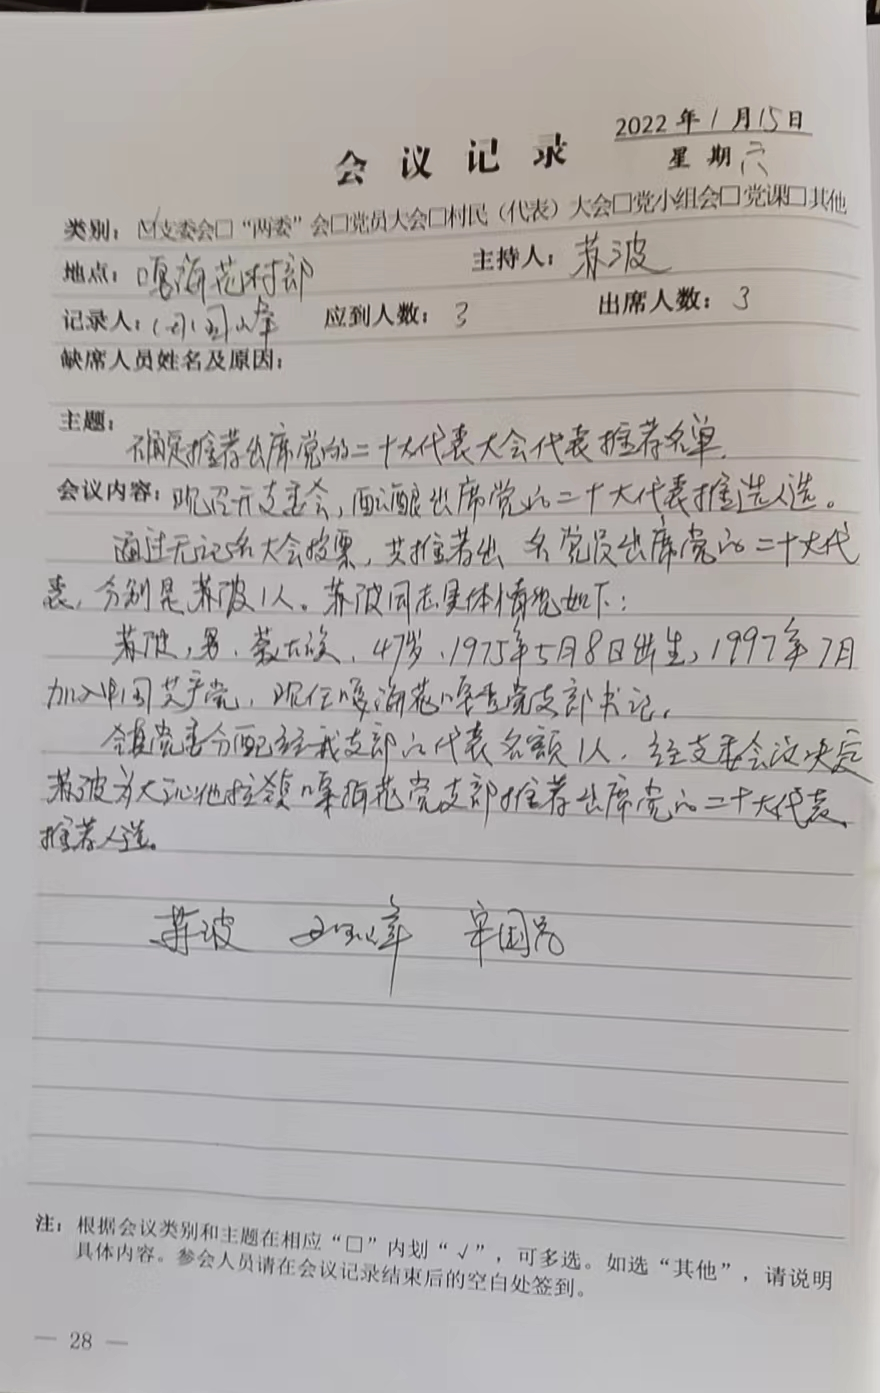 会议记录
2022年1月15日
星期六
类别：☑支委会□“两委”会□党员大会□村民（代表）大会□党小组会□党课□其他
地点：嘎海花村部 主持人：苏波
记录人： 国峰 应到人数：3 出席人数：3
缺席人员姓名及原因：
主题：
确定推荐出席党的二十大代表大会代表推荐名单.
会议内容：现召开支委会，酝酿出席党的二十大代表推选人选。
通过无记名大会投票，共推荐出 名党员出席党的二十大代
表，分别是苏波1人。苏波同志具体情况如下：
苏波，男，蒙古族，47岁，1975年5月8日出生，1997年7月
加入中国共产党，现任嘎海花嘎查党支部书记，
镇党委分配给我支部的代表名额1人，经支委会议决定
苏波为 镇嘎海花党支部推荐出席党的二十大代表
推荐人选。
苏波 国
注：根据会议类别和主题在相应“□”内划“√”，可多选。如选“其他”，请说明
具体内容。参会人员请在会议记录结束后的空白处签到。
— 28 —